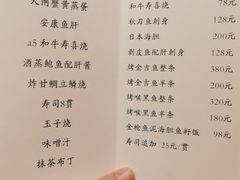 大闸蟹黄蒸蛋
安康鱼肝
a5和牛寿喜烧
酒蒸鲍鱼配肝酱
炸甘鲷立鳞烧
寿司8贯
玉子烧
味噌汁
抹茶布丁
和牛寿喜烧 78元
秋刀鱼刺身 128元
日本海胆 200元
剥皮鱼配肝刺身 128元
烤金吉鱼整条 380元
烤金吉鱼半条 200元
烤喉黑鱼整条 320元
烤喉黑鱼半条 180元
金枪鱼泥海胆鱼籽饭 98元
寿司追加 25元/贯